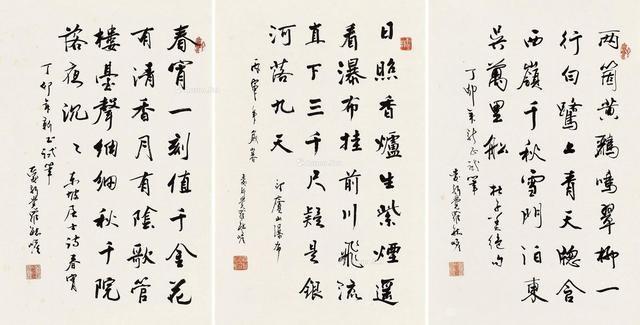 两箇黄鸝鳴翠柳一
行白鷺上青天牕含
西嶺千秋雪門泊東
吴萬里船 杜子美絶句
丁卯年新正试筆
爱新覺羅毓嶦
日照香爐生紫煙遥
看瀑布挂前川飛流
直下三千尺疑是銀
河落九天 望廬山瀑布
丙寅年歲暮
爱新覺羅毓嶦
春宵一刻值千金花
有清香月有陰歌管
樓臺聲細細秋千院
落夜沉〻 东坡居士詩春宵
丁卯年新正试筆
爱新覺羅毓嶦